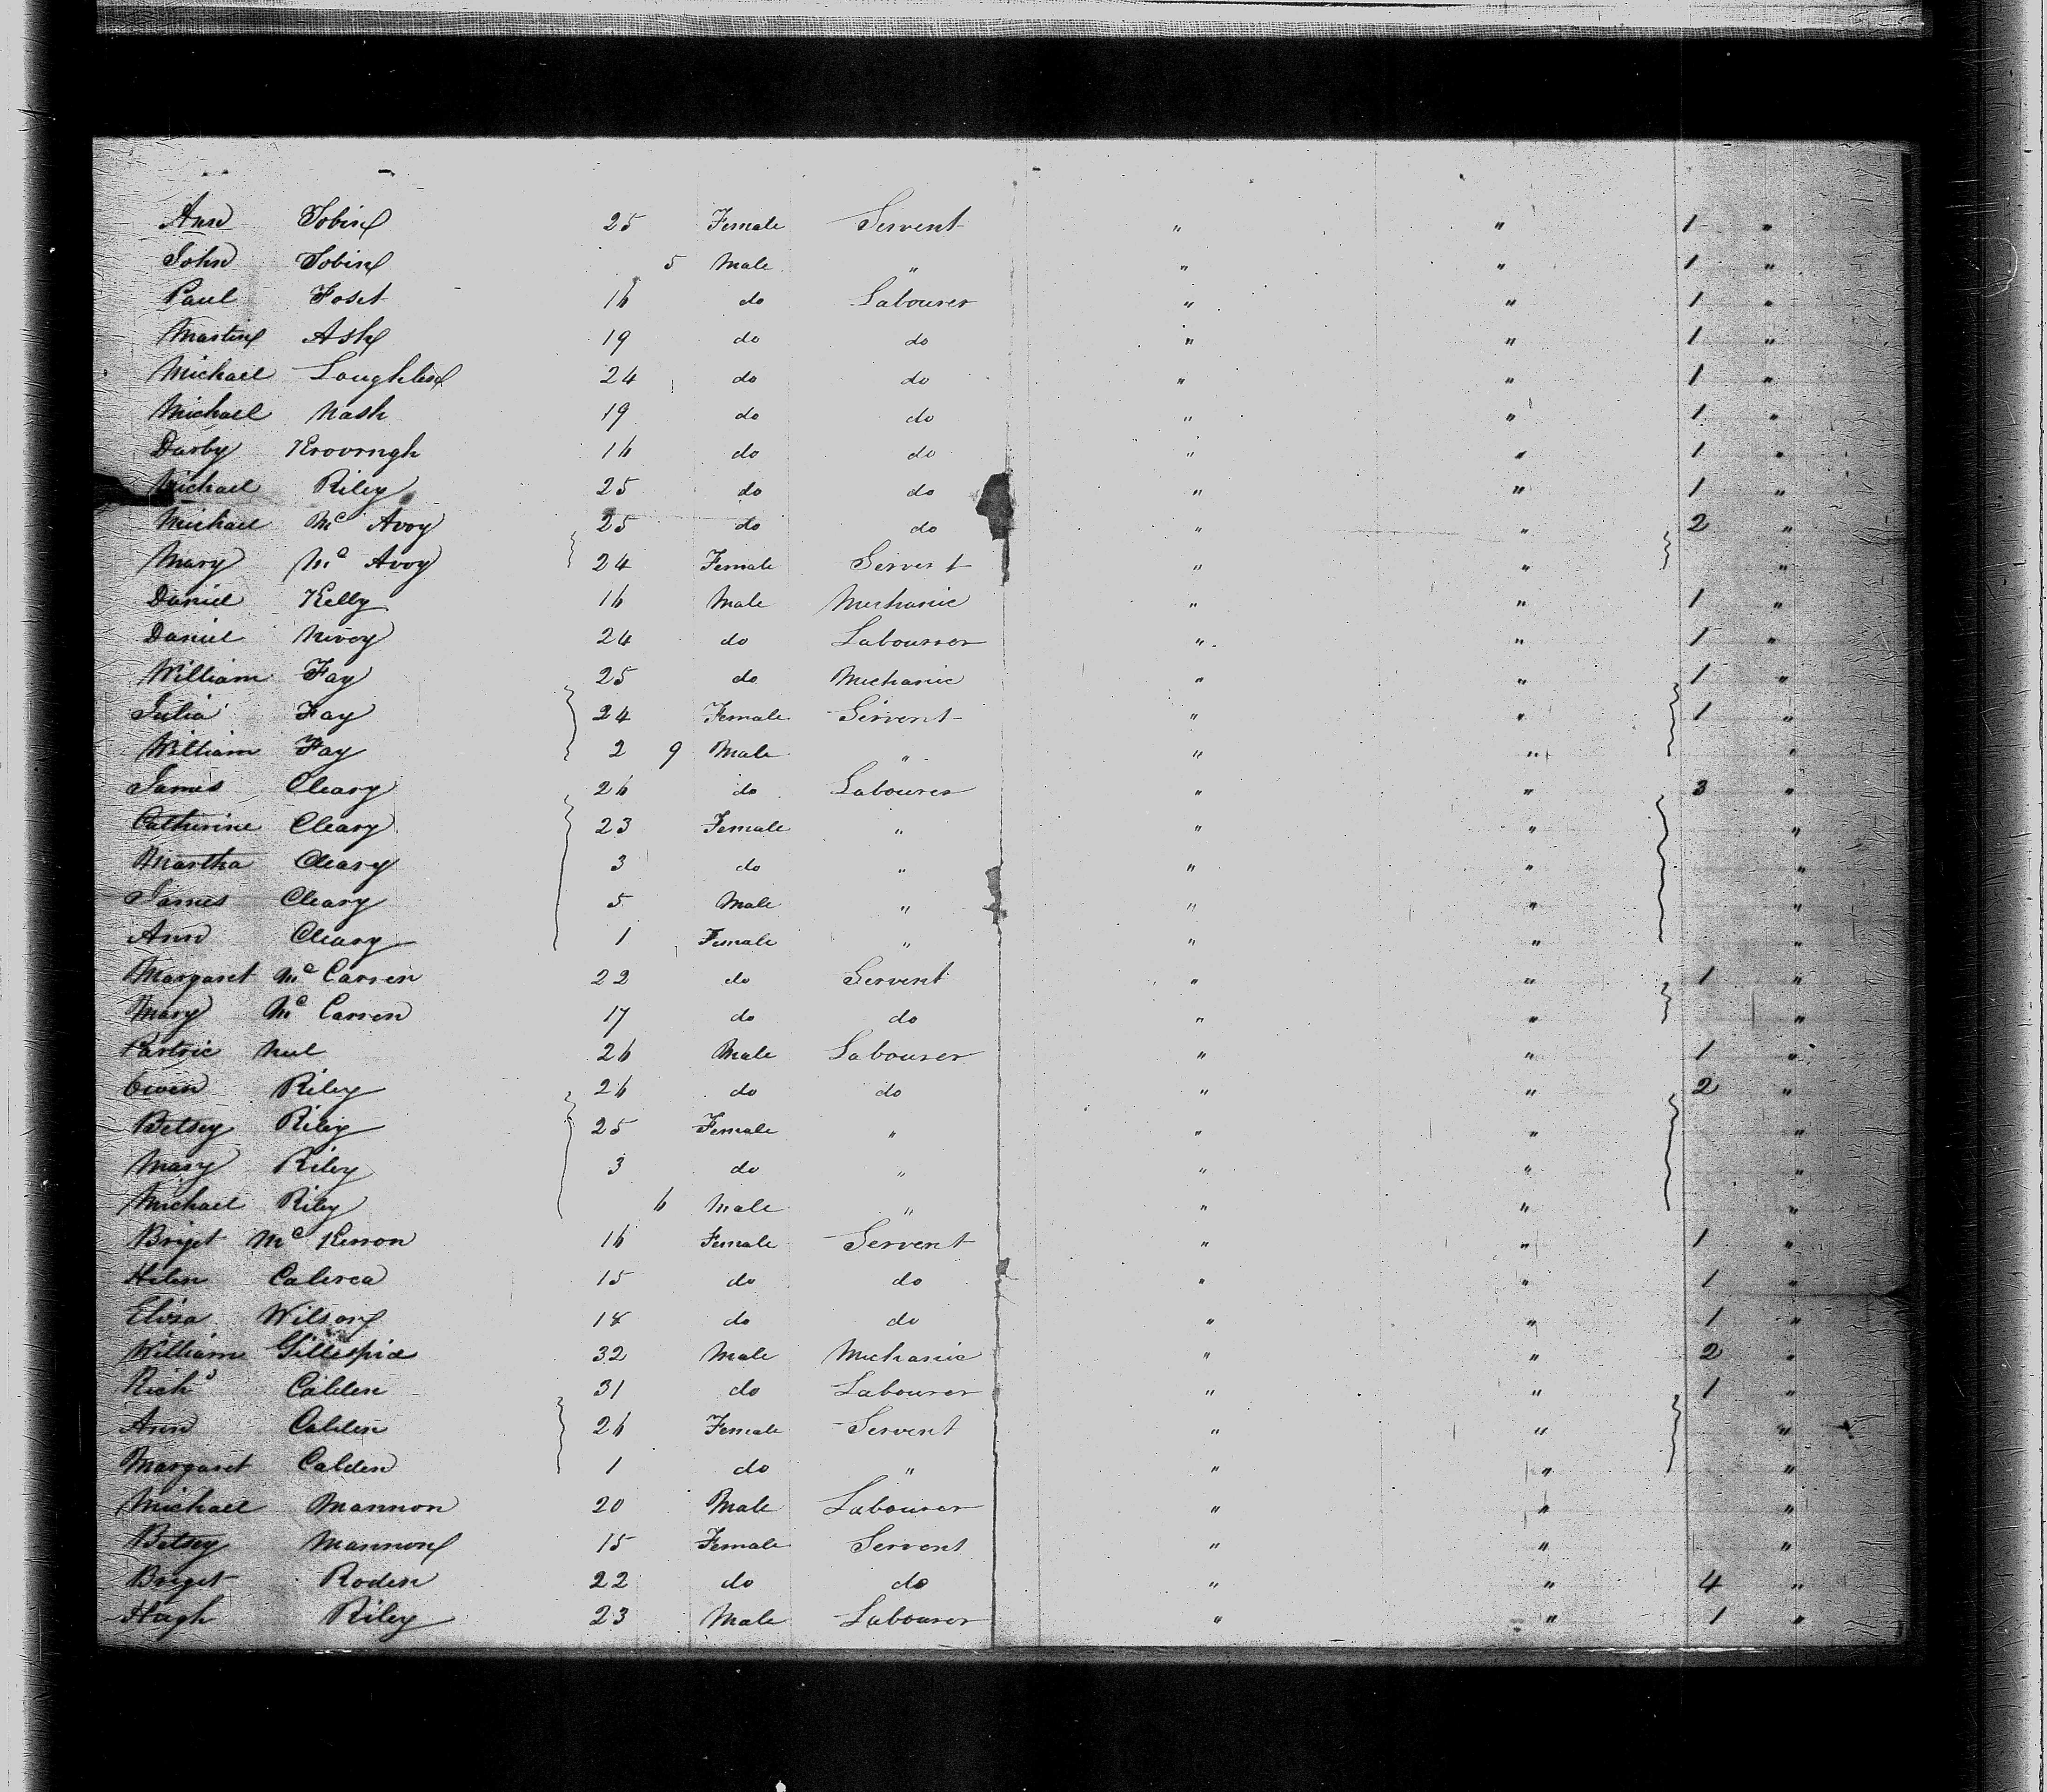 Ann Tobin 25 Female Servent " " 1 "
John Tobin 5 Male " " " 1 "
Paul Foset 16 do Labourer " " 1 "
Martin Ash 19 do do " " 1 "
Michael Loughlin 24 do do " " 1 "
Michael Nash 19 do do " " 1 "
Darby 16 do do " " 1 "
Michael Riley 25 do do " " 1 "
Michael Mc Avoy 25 do do " " 2 "
Mary Mc Avoy 24 Female Servent " " "
Daniel Kelly 16 Male Mechanic " " 1 "
Daniel 24 do Labourer " " 1 "
William Fay 25 do Mechanic " " 1 "
Julia Fay 24 Female Servent " " 1 "
William Fay 2 9 Male " " " "
James Cleary 26 do Labourer " " 3 "
Catherine Cleary 23 Female " " " "
Martha Cleary 3 do " " " "
James Cleary 5 Male " " " "
Ann Cleary 1 Female " " " "
Margaret Mc Carren 22 do Servent " " 1 "
Mary Mc Carren 17 do do " " "
Patric 26 Male Labourer " " 1 "
Owen Riley 26 do do " " 2 "
Betsey Riley 25 Female " " " "
Mary Riley 3 do " " " "
Michael Riley 6 Male " " " "
Briget Mc Kerron 16 Female Servent " " 1 "
Helen 15 do do " " 1 "
Elisa Wilson 18 do do " " 1 "
William Gillespie 32 Male Mechanic " " 2 "
Richd Calden 31 do Labourer " " 1 "
Ann Calden 26 Female Servent " " "
Margaret Calden 1 do " " " "
Michael Mannon 20 Male Labourer " " "
Betsey Mannon 15 Female Servent " " "
Briget Roden 22 do do " " 4 "
Hugh Riley 23 Male Labourer " " 1 "